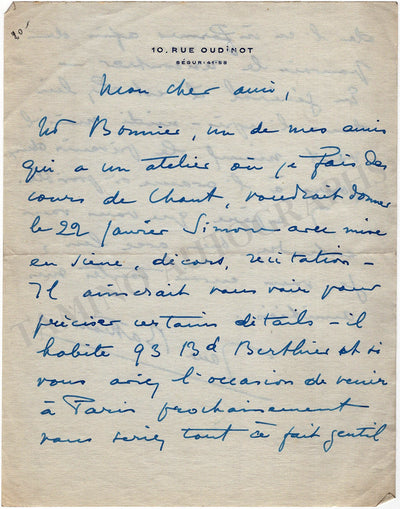 20'
10, RUE OUDINOT
SÉGUR 41-53
Mon cher ami,
Mr Bonnier, un de mes amis
qui a un atelier où je fais des
cours de Chant, voudrait donner
le 22 Janvier Simone avec mise
en scène, décors, récitation –
Il aimerait vous voir pour
préciser certains détails – il
habite 93 Bd Berthier et si
vous aviez l'occasion de venir
à Paris prochainement
vous seriez tout à fait gentil